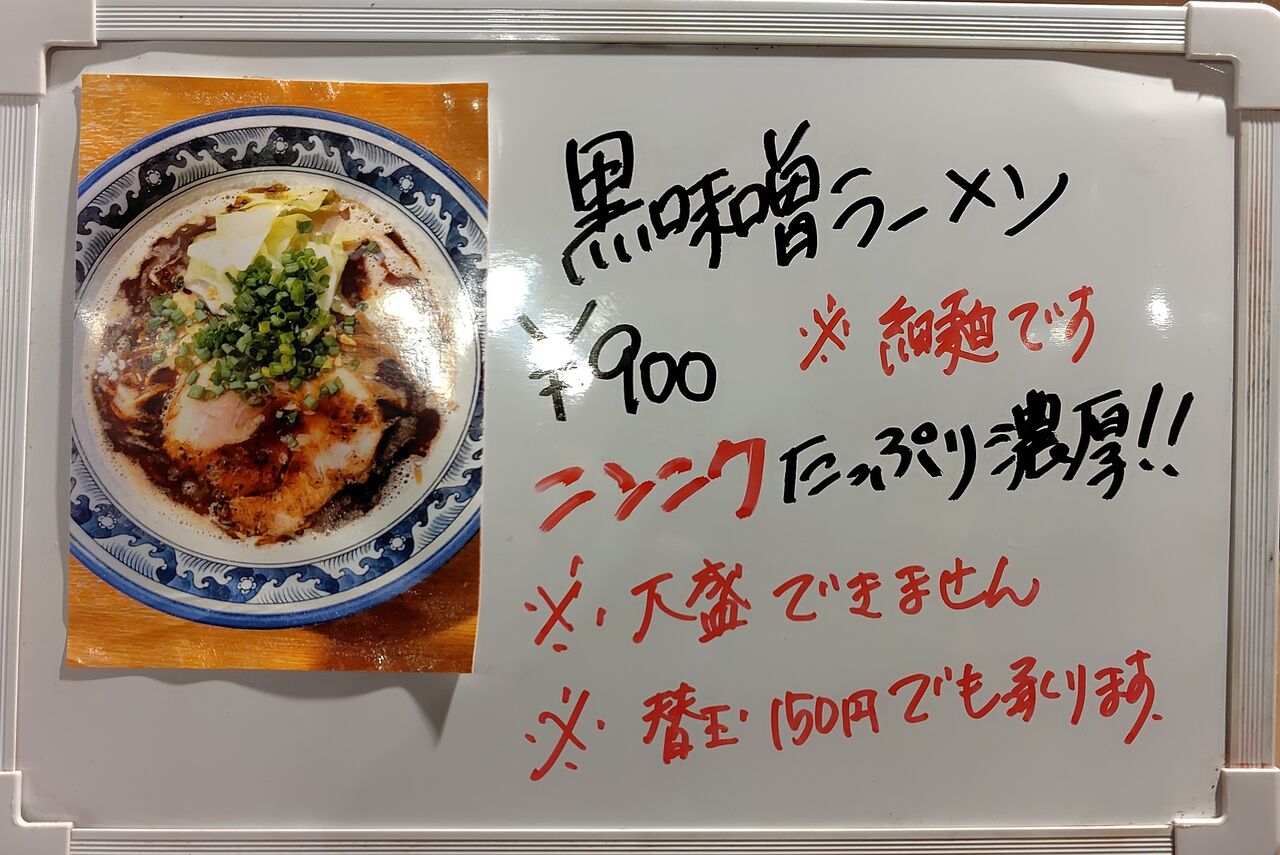 黒味噌ラーメン
¥900 ※細麺です
ニンニクたっぷり濃厚!!
※大盛できません
※替玉150円でも承ります。